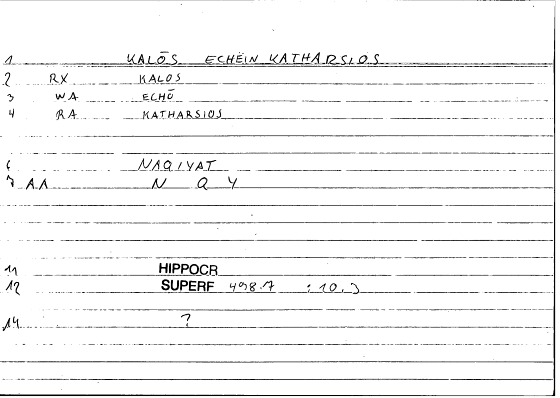 1 KALŌS ECHEIN KATHARSIOS
2 RX KALOS
3 WA ECHŌ
4 RA KATHARSIOS
6 NAQIYAT
7 AA N Q Y
11 HIPPOCR
12 SUPERF 498.7 : 10.
14 ?